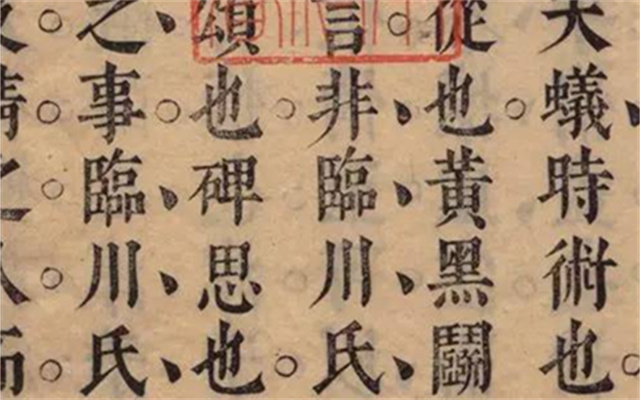 夫蟻、時術也。
從也。黃黑鬭
言。非、臨、川、氏、
頌也。碑思也。
之、事。臨、川、氏、
情。之。人。而。